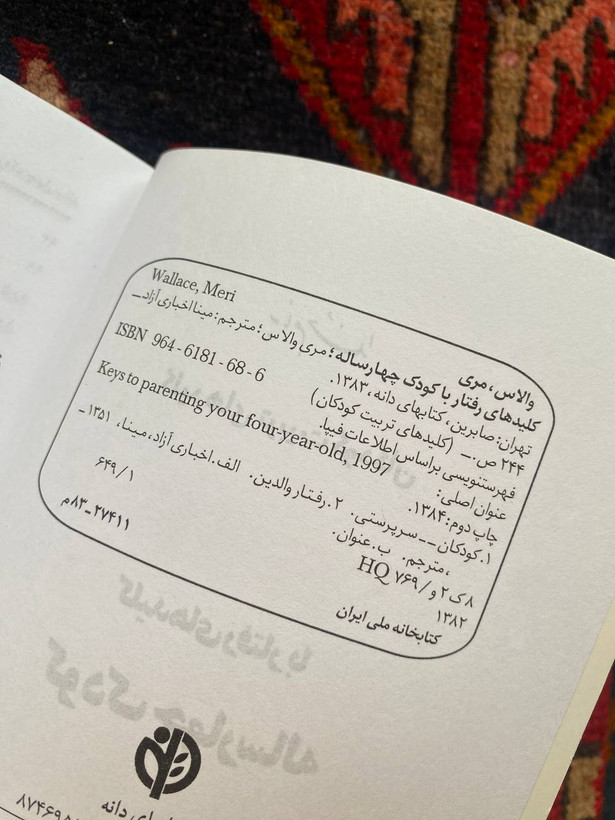 Wallace, Meri
والاس، مری
کلیدهای رفتار با کودک چهارساله؛ مری والاس؛ مترجم: مینا اخباری آزاد._
تهران: صابرین، کتابهای دانه، ۱۳۸۳.
ISBN 964-6181-68-6
۲۴۴ ص._ (کلیدهای تربیت کودکان)
فهرستنویسی براساس اطلاعات فیپا.
عنوان اصلی: Keys to parenting your four-year-old, 1997
چاپ دوم: ۱۳۸۴.
۱. کودکان -- سرپرستی. ۲. رفتار والدین. الف. اخباری آزاد، مینا، ۱۳۵۱ـ
، مترجم. ب. عنوان.
۶۴۹/۱
HQ ۷۶۹/و۲ک۸
۱۳۸۲
۸۳ـ۲۷۴۱۱م
کتابخانه ملی ایران
دانه